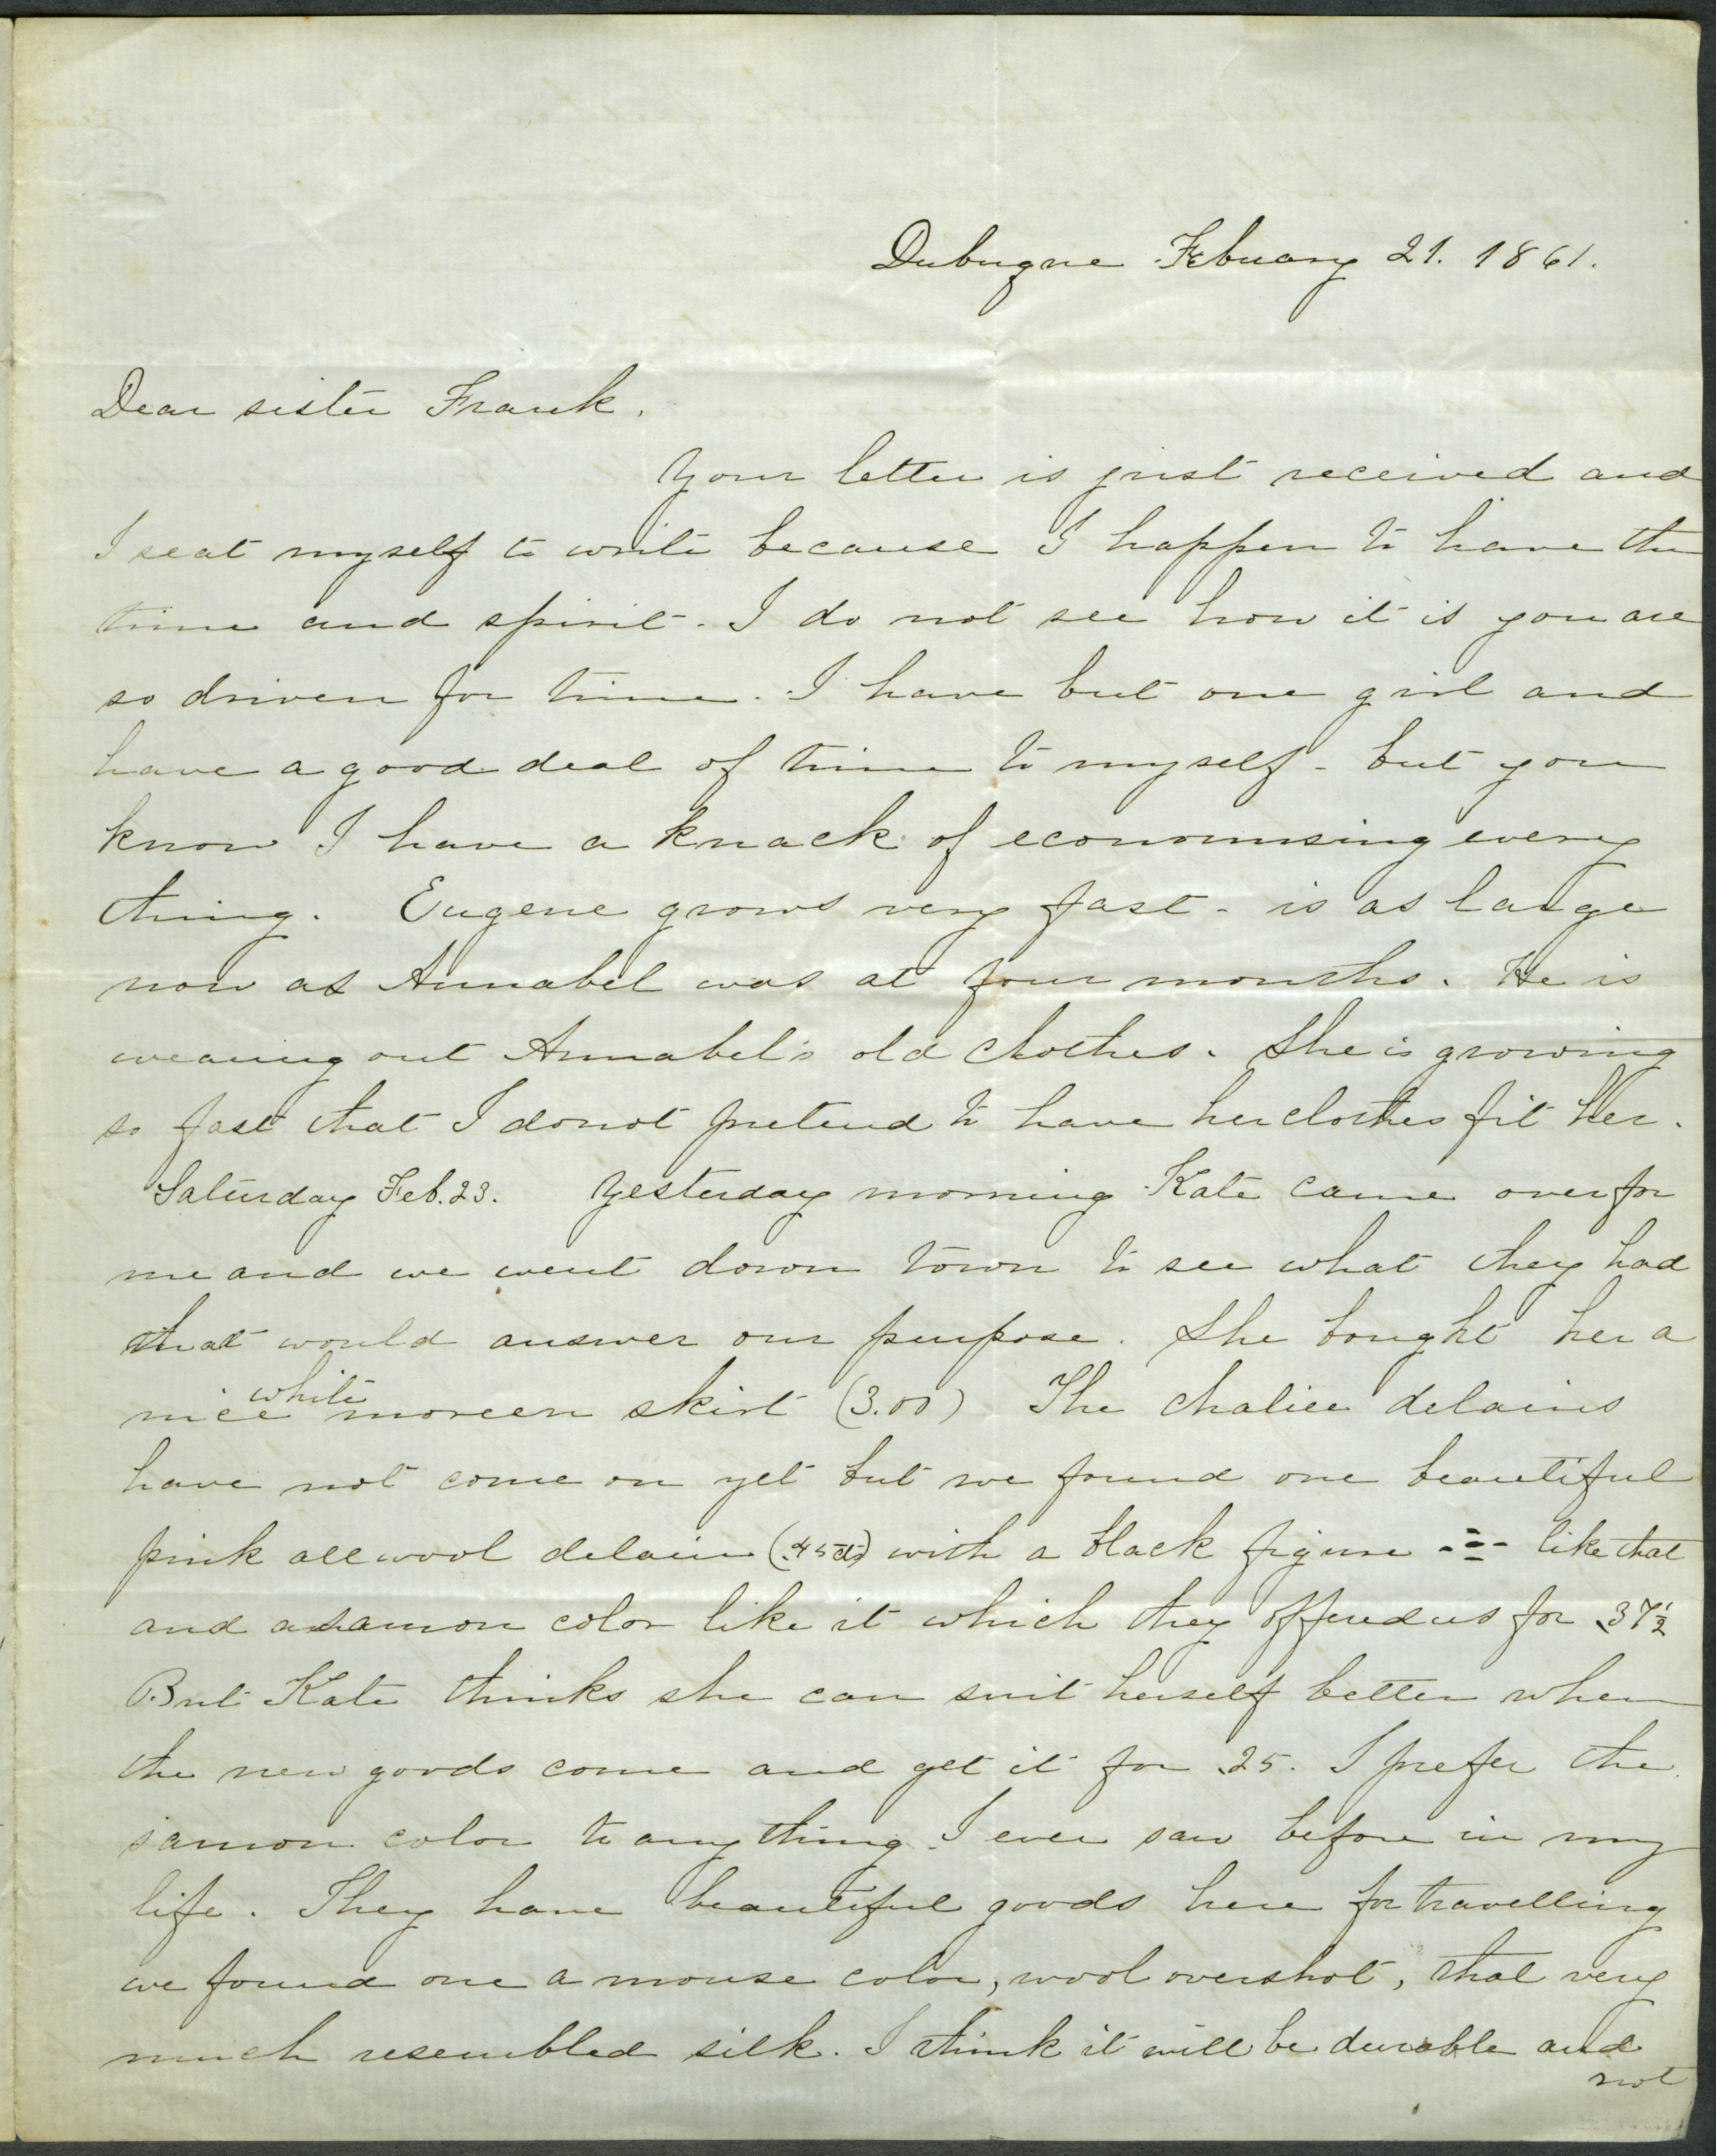 Dubuque Febuary 21. 1861.
Dear sister Frank.
Your letter is just received and
I seat myself to write because I happen to have the
time and spirit. I do not see how it is you are
so driven for time. I have but one girl and
have a good deal of time to myself - but you
know I have a knack of economising every
thing. Eugene grows very fast - is as large
now as Annabel was at four months. He is
wearing out Annabel's old clothes. She is growing
so fast that I do not pretend to have her clothes fit her.
Saturday Feb. 23. Yesterday morning Kate came over for
me and we went down town to see what they had
that would answer our purpose. She bought her a
nice white moreen skirt (3.00) The chalice delains
have not come on yet but we found one beautiful
pink all wool delain (.45cts) with a black figure like that
and a samon color like it which they offered us for .37½
But Kate thinks she can suit herself better when
the new goods come and get it for .25. I prefer the
samon color to any thing I ever saw before in my
life. They have beautiful goods here for travelling
we found one a mouse color, wool overshot, that very
much resembled silk. I think it will be durable and
not